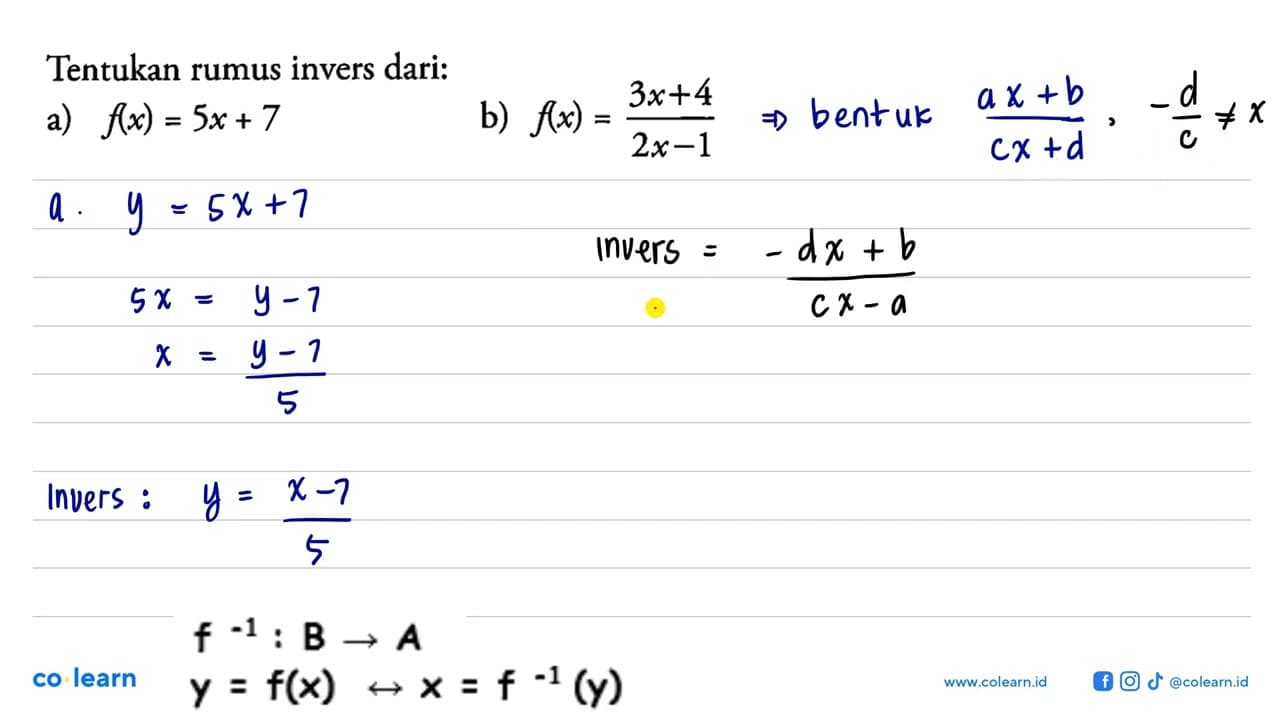 Tentukan rumus invers dari:
a) f(x) = 5x + 7 b) f(x) = \frac{3x+4}{2x-1} ⇒ bentuk \frac{ax+b}{cx+d}, -\frac{d}{c} ≠ x
a. y = 5x + 7
5x = y - 7
x = \frac{y-7}{5}
Invers : y = \frac{x-7}{5}
invers = \frac{-dx+b}{cx-a}
f ⁻¹ : B → A
y = f(x) ↔ x = f ⁻¹ (y)
co learn
www.colearn.id
@colearn.id